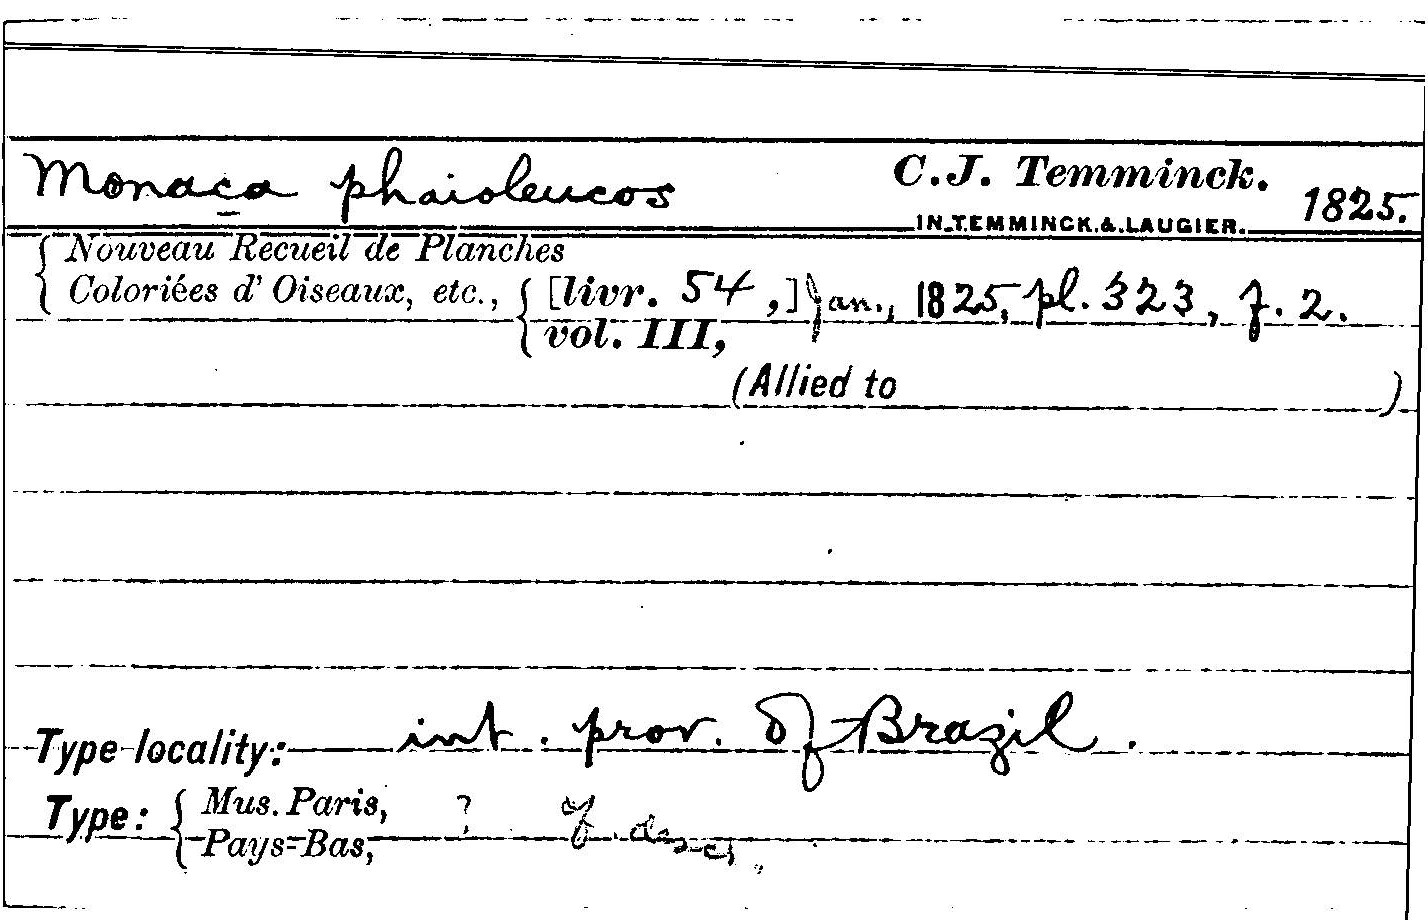 Monaca phaioleucos C.J. Temminck. 1825.
IN TEMMINCK & LAUGIER.
Nouveau Recueil de Planches
Coloriées d'Oiseaux, etc., [livr. 54,] Jan., 1825, pl. 323, f. 2.
vol. III,
(Allied to )
Type locality: int. prov. of Brazil.
Type: Mus. Paris, ?
Pays-Bas,